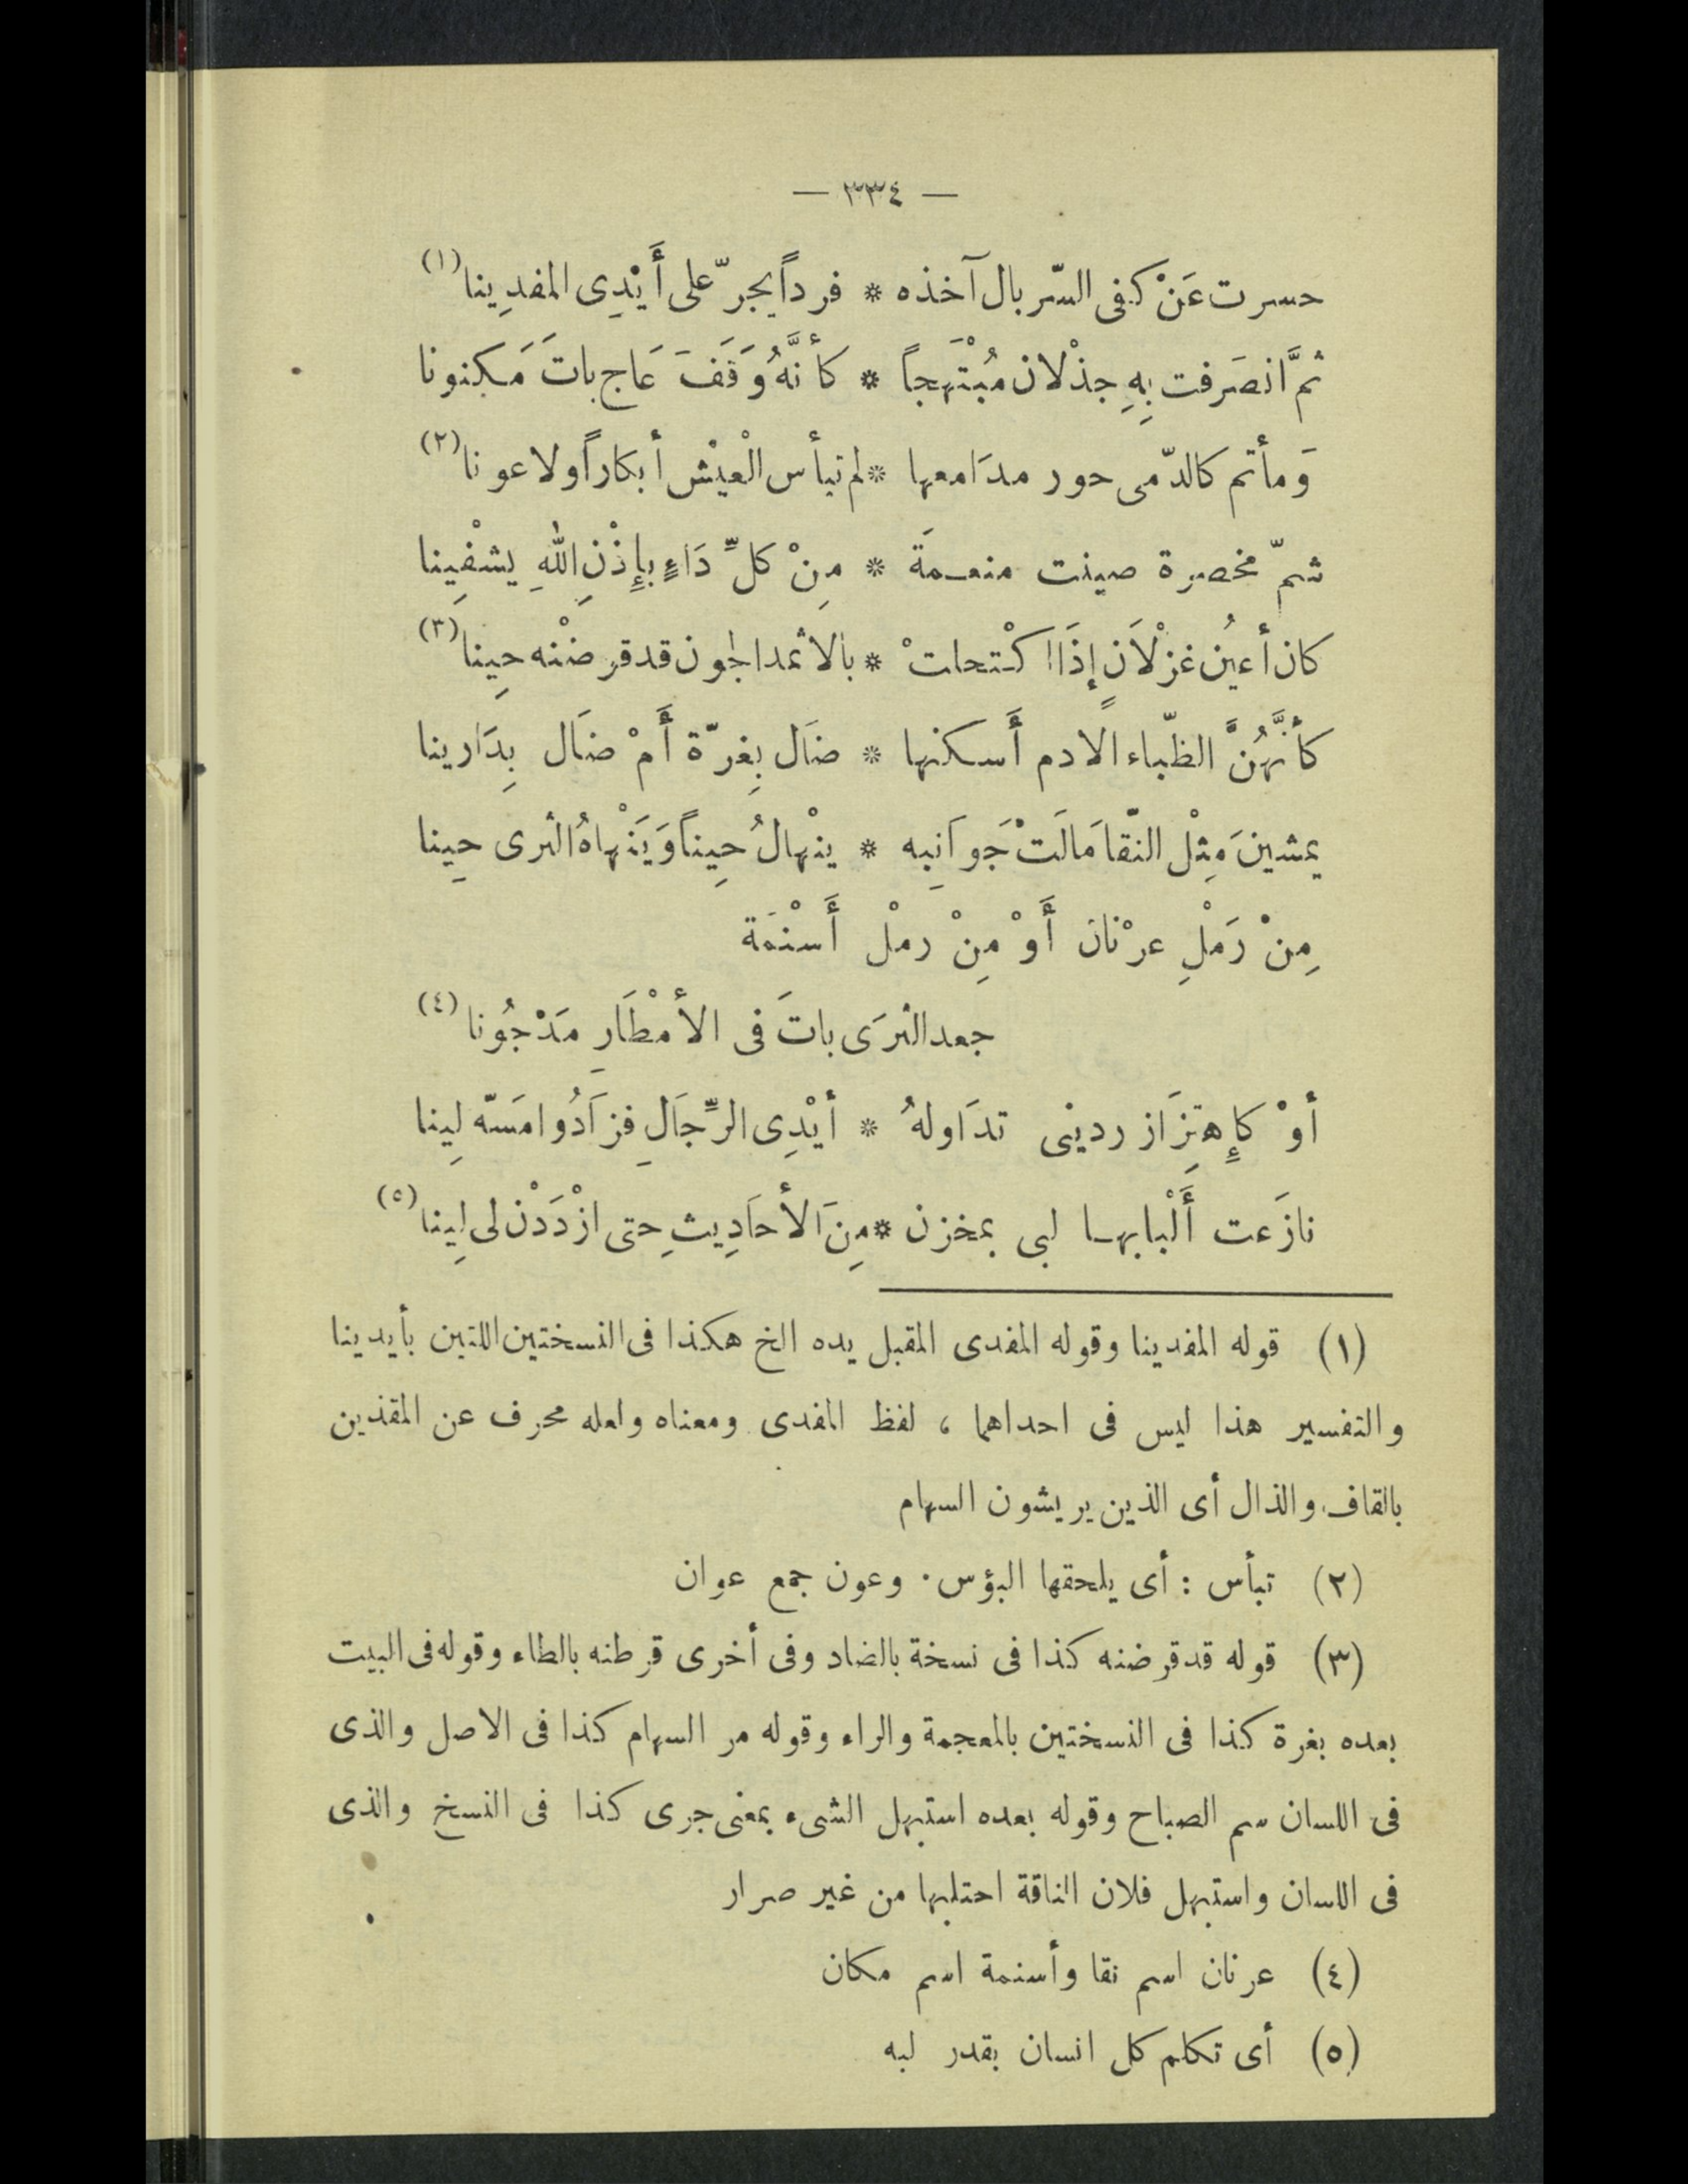 — ٣٣٤ —
حسرت عَنْ كفى السّربال آخذه * فرداً يجرّ على أَيْدِى المفدِينا (١)
ثمَّ انصَرفت بِهِ جذْلان مُبْتَهجاً * كأنَّهُ وَقَفَ عَاج باتَ مَكنونا
وَمأتم كالدّمى حور مدَامعها * لم تبأس الْعيْش أبكاراً ولا عونا (٢)
شمّ مخصرة صينت منعمَة * مِنْ كلِّ دَاءٍ بإِذْنِ اللهِ يشفِينا
كان أعينُ غزْلاَنٍ إِذَا اكْتحلتْ * بالاثمد الجون قد قرضْنه حِينا (٣)
كأنَّهُنَّ الظّباء الادم أَسكنها * ضاَل بِغرّة أَمْ ضاَل بِدَارينا
يمشينَ مِثْل النّقا مَالَتْ جَوانِبه * ينْهالُ حِيناً وَيَنْهاهُ الثرى حِينا
مِنْ رَمْلِ عرْنانَ أَوْ مِنْ رمْل أَسْنمَة
جعد الثرَى باتَ فى الأمْطَارِ مَدْجُونا (٤)
أوْ كاِهتِزَاز ردينى تدَاولهُ * أيْدِى الرِّجَالِ فزَادُوا مَسّه لِينا
نازَعت أَلْبابها لبى بمخزن * مِنَ الأحاَدِيثِ حتى ازْدَدْن لى لِينا (٥)
(١) قوله المفدينا وقوله المفدى المقبل يده الخ هكذا فى النسختين اللتين بأيدينا
والتفسير هذا ليس فى احداهما ، لفظ المفدى ومعناه ولعله محرف عن المقذين
بالقاف والذال أى الذين يريشون السهام
(٢) تبأس : أى يلحقها البؤس . وعون جمع عوان
(٣) قوله قد قرضنه كذا فى نسخة بالضاد وفى أخرى قرطنه بالطاء وقوله فى البيت
بعده بغرة كذا فى النسختين بالمعجمة والراء وقوله مر السهام كذا فى الاصل والذى
فى اللسان سم الصباح وقوله بعده استبهل الشىء بمعنى جرى كذا فى النسخ والذى
فى اللسان واستبهل فلان الناقة احتلبها من غير صرار
(٤) عرنان اسم نقا وأسنمة اسم مكان
(٥) أى تكلم كل انسان بقدر لبه